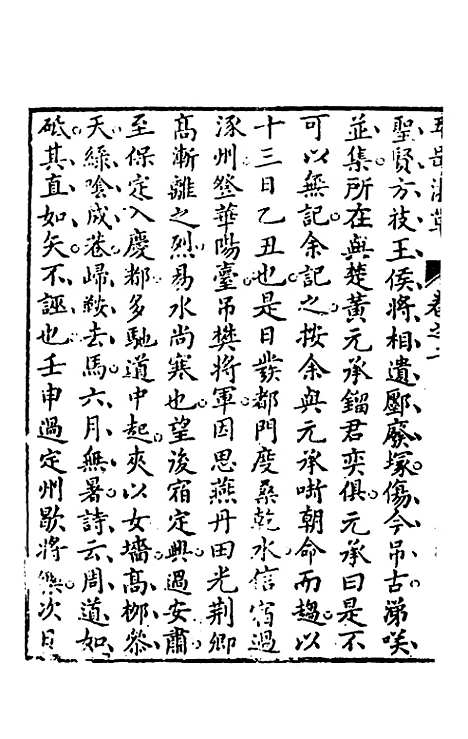 五岳游草 卷之一
聖賢方技王侯將相遺鄽廢塚傷今吊古涕咲
並集所在與楚黃元承鎦君奕俱元承曰是不
可以無記余記之按余與元承啣朝命而趨以
十三日乙丑也是日發都門度桑乾水信宿過
涿州登華陽臺吊樊將軍因思燕丹田光荆卿
高漸離之烈易水尚寒也望後宿定興過安肅
至保定入慶都多馳道中起夾以女墻高桞叅
天綠陰成巷歸鞍去馬六月無暑詩云周道如
砥其直如矢不誣也壬申過定州歇將樂次日